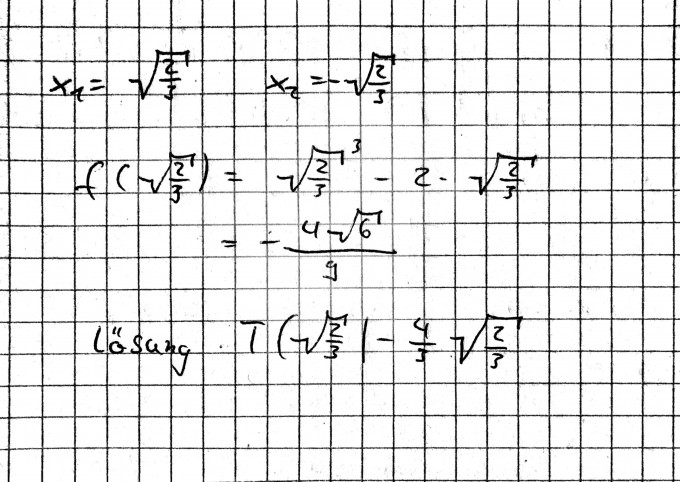 x₁ = √(2/3) x₂ = -√(2/3)
f(√(2/3)) = √(2/3)³ - 2 · √(2/3)
= - 4√6/9
Lösung T(√(2/3) | - 4/3 √(2/3)